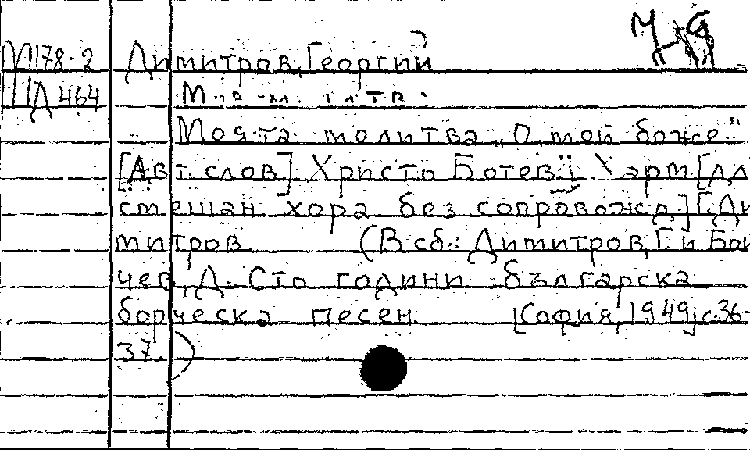 М178-2 Димитров, Георгий
ПД 464
Моята молитва „О, мой боже".
[Авт. слов] Христо Ботев; Харм [дл
смешан хора без сопровожд.] Г. Ди
митров. (В сб.: Димитров, Г. и Бой
чев, Д. Сто години българска
борческа песен. [София, 1949], с. 36-
37.)